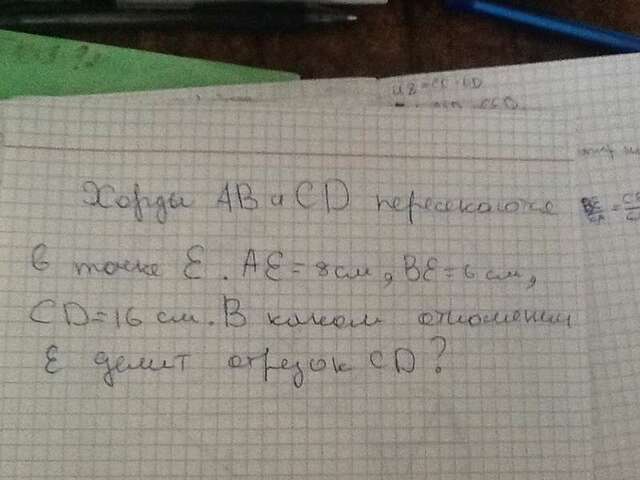 Хорды AB и CD пересекаются
в точке E. AE=8см, BE=6см,
CD=16 см. В каком отношении
E делит отрезок CD?